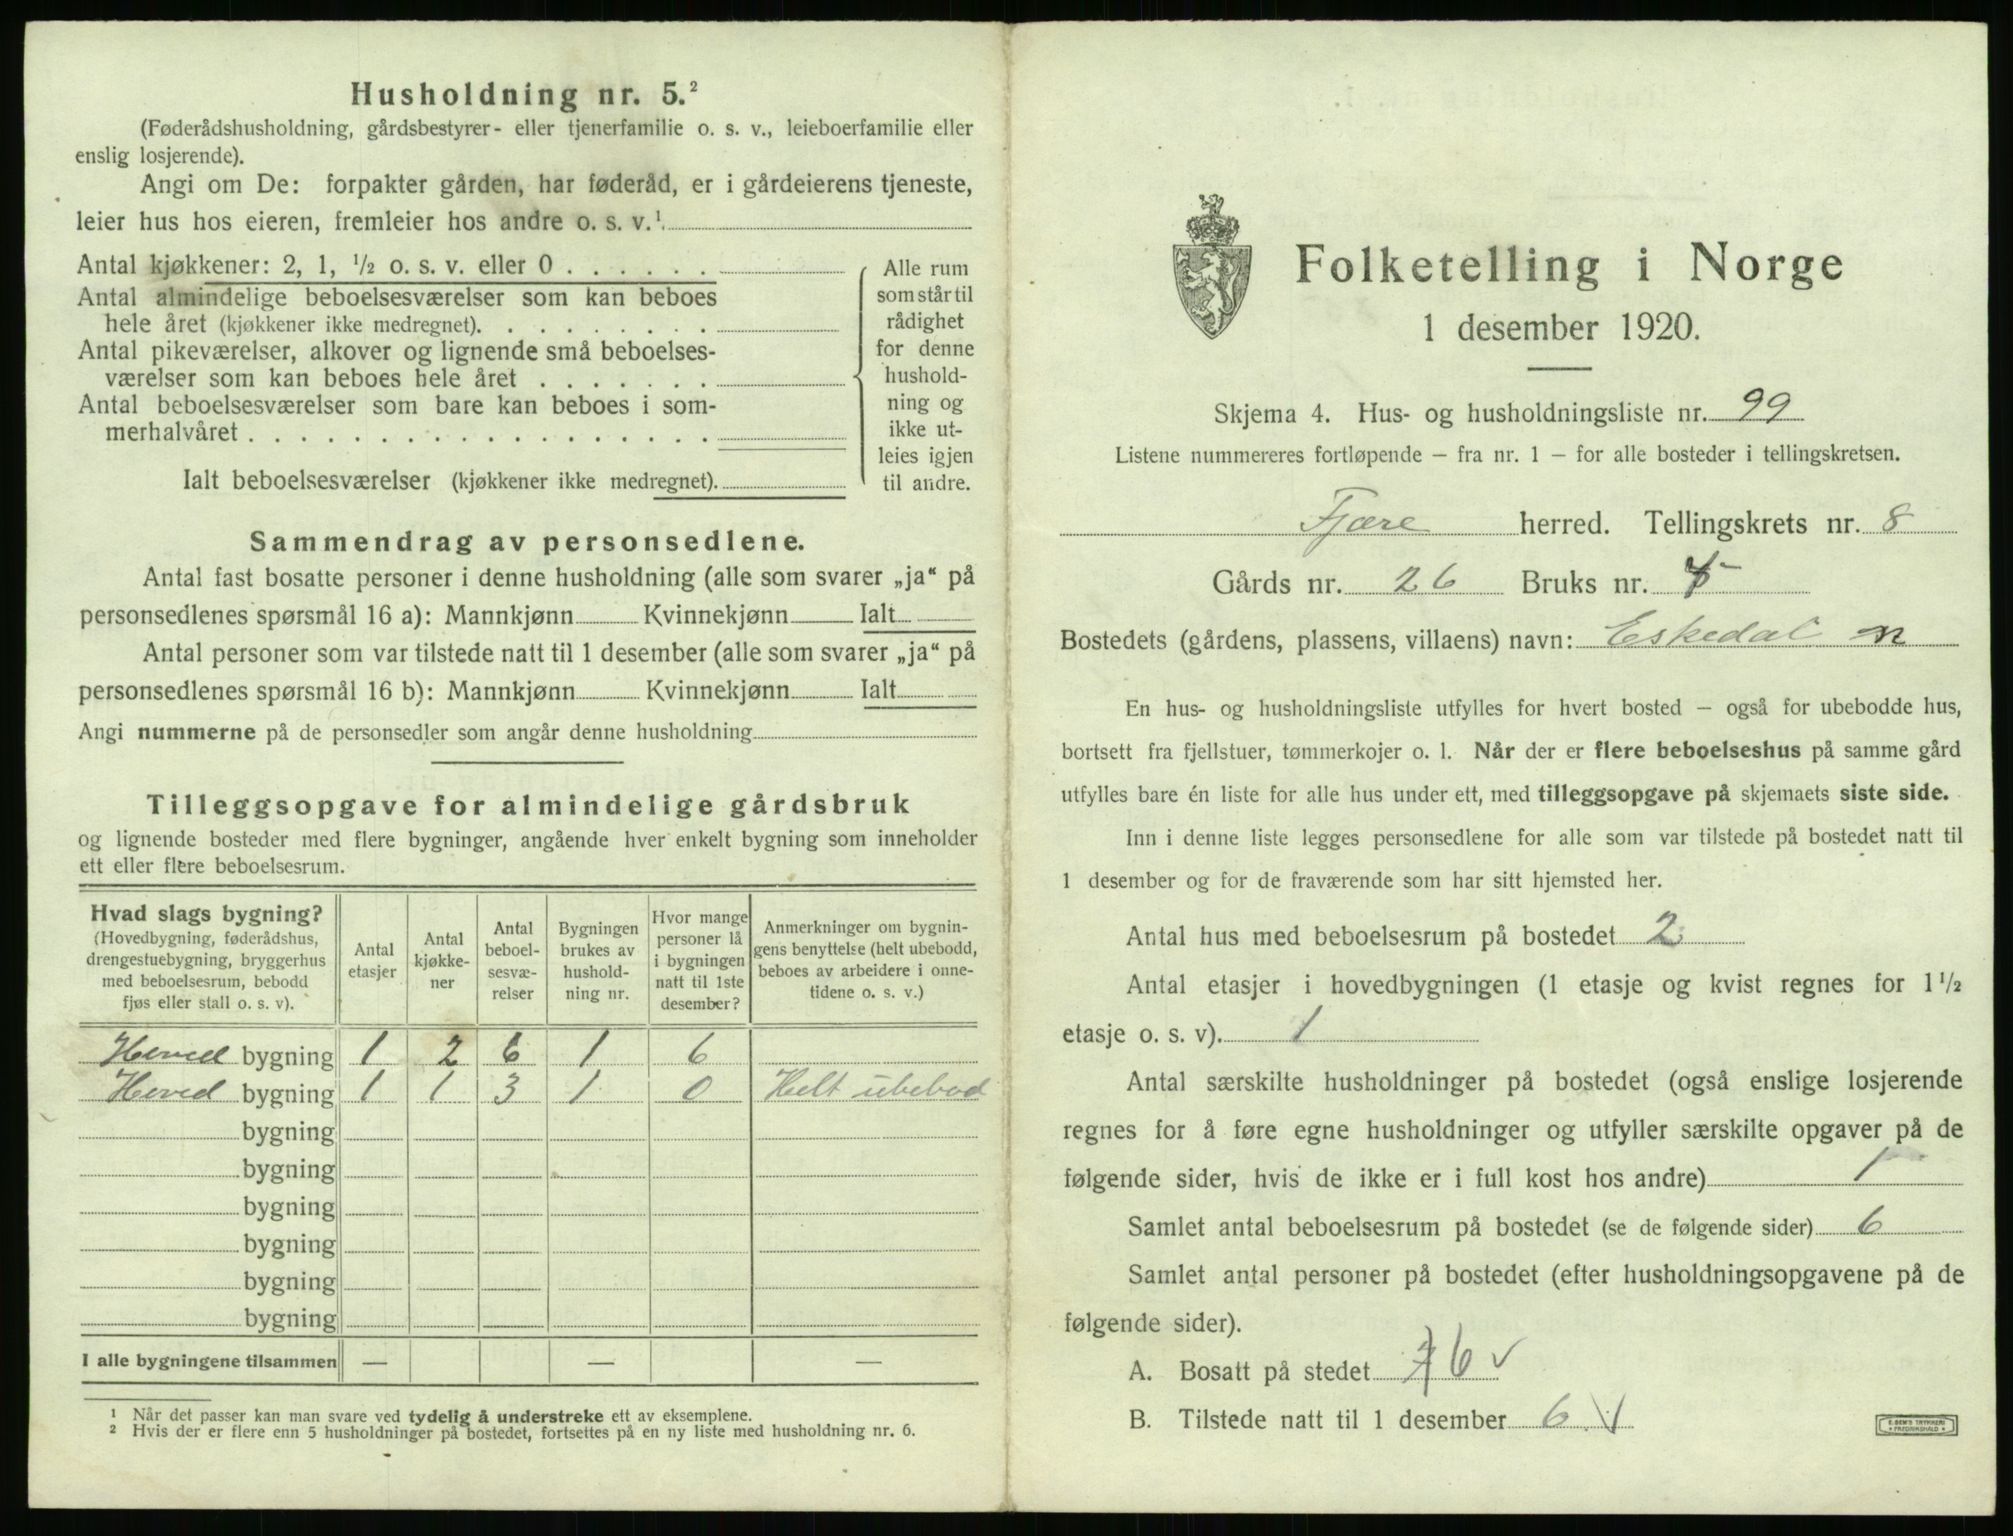 Husholdning nr. 5.²
(Føderådshusholdning, gårdsbestyrer- eller tjenerfamilie o. s. v., leieboerfamilie eller
enslig losjerende).
Angi om De: forpakter gården, har føderåd, er i gårdeierens tjeneste,
leier hus hos eieren, fremleier hos andre o. s. v.¹
Antal kjøkkener: 2, 1, ½ o. s. v. eller 0 . . . . . .
Antal almindelige beboelsesværelser som kan beboes
hele året (kjøkkener ikke medregnet). . . . . . . . .
Antal pikeværelser, alkover og lignende små beboelses-
værelser som kan beboes hele året . . . . . . .
Antal beboelsesværelser som bare kan beboes i som-
merhalvåret . . . . . . . . . . . . . . . . . .
Ialt beboelsesværelser (kjøkkener ikke medregnet).
Alle rum
som står til
rådighet
for denne
hushold-
ning og
ikke ut-
leies igjen
til andre.
Sammendrag av personsedlene.
Antal fast bosatte personer i denne husholdning (alle som svarer „ja“ på
personsedlenes spørsmål 16 a): Mannkjønn Kvinnekjønn Ialt
Antal personer som var tilstede natt til 1 desember (alle som svarer „ja“ på
personsedlenes spørsmål 16 b): Mannkjønn Kvinnekjønn Ialt
Angi nummerne på de personsedler som angår denne husholdning
Tilleggsopgave for almindelige gårdsbruk
og lignende bosteder med flere bygninger, angående hver enkelt bygning som inneholder
ett eller flere beboelsesrum.
Hvad slags bygning?
(Hovedbygning, føderådshus,
drengestuebygning, bryggerhus
med beboelsesrum, bebodd
fjøs eller stall o. s. v).
Antal
etasjer
Antal
kjøkke-
ner
Antal
beboel-
sesvæ-
relser
Bygningen
brukes av
hushold-
ning nr.
Hvor mange
personer lå
i bygningen
natt til 1ste
desember?
Anmerkninger om bygnin-
gens benyttelse (helt ubebodd,
beboes av arbeidere i onne-
tidene o. s. v.)
Hoved bygning 1 2 6 1 6
Hoved bygning 1 1 3 1 0 Helt ubebod
bygning
bygning
bygning
bygning
bygning
bygning
I alle bygningene tilsammen — — —
¹ Når det passer kan man svare ved tydelig å understreke ett av eksemplene.
² Hvis der er flere enn 5 husholdninger på bostedet, fortsettes på en ny liste med husholdning nr. 6.
Folketelling i Norge
1 desember 1920.
Skjema 4. Hus- og husholdningsliste nr. 99
Listene nummereres fortløpende – fra nr. 1 – for alle bosteder i tellingskretsen.
Fjære herred. Tellingskrets nr. 8
Gårds nr. 26 Bruks nr.
Bostedets (gårdens, plassens, villaens) navn: Eskedal
En hus- og husholdningsliste utfylles for hvert bosted – også for ubebodde hus,
bortsett fra fjellstuer, tømmerkojer o. l. Når der er flere beboelseshus på samme gård
utfylles bare én liste for alle hus under ett, med tilleggsopgave på skjemaets siste side.
Inn i denne liste legges personsedlene for alle som var tilstede på bostedet natt til
1 desember og for de fraværende som har sitt hjemsted her.
Antal hus med beboelsesrum på bostedet 2
Antal etasjer i hovedbygningen (1 etasje og kvist regnes for 1½
etasje o. s. v). 1
Antal særskilte husholdninger på bostedet (også enslige losjerende
regnes for å føre egne husholdninger og utfyller særskilte opgaver på de
følgende sider, hvis de ikke er i full kost hos andre) 1
Samlet antal beboelsesrum på bostedet (se de følgende sider) 6
Samlet antal personer på bostedet (efter husholdningsopgavene på de
følgende sider).
A. Bosatt på stedet 6
B. Tilstede natt til 1 desember 6